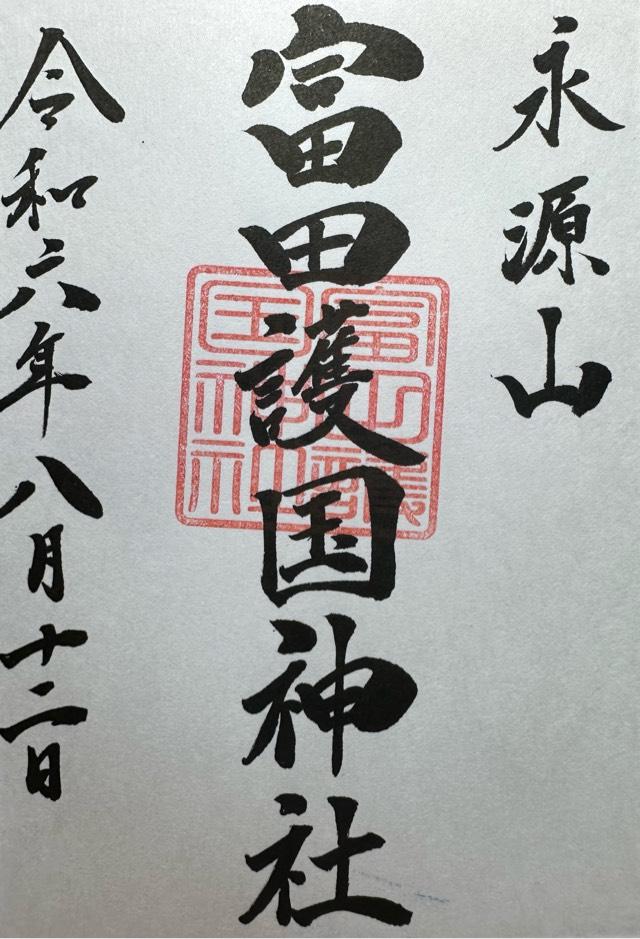 永源山
富田護国神社
富田護国神社
令和六年八月十二日